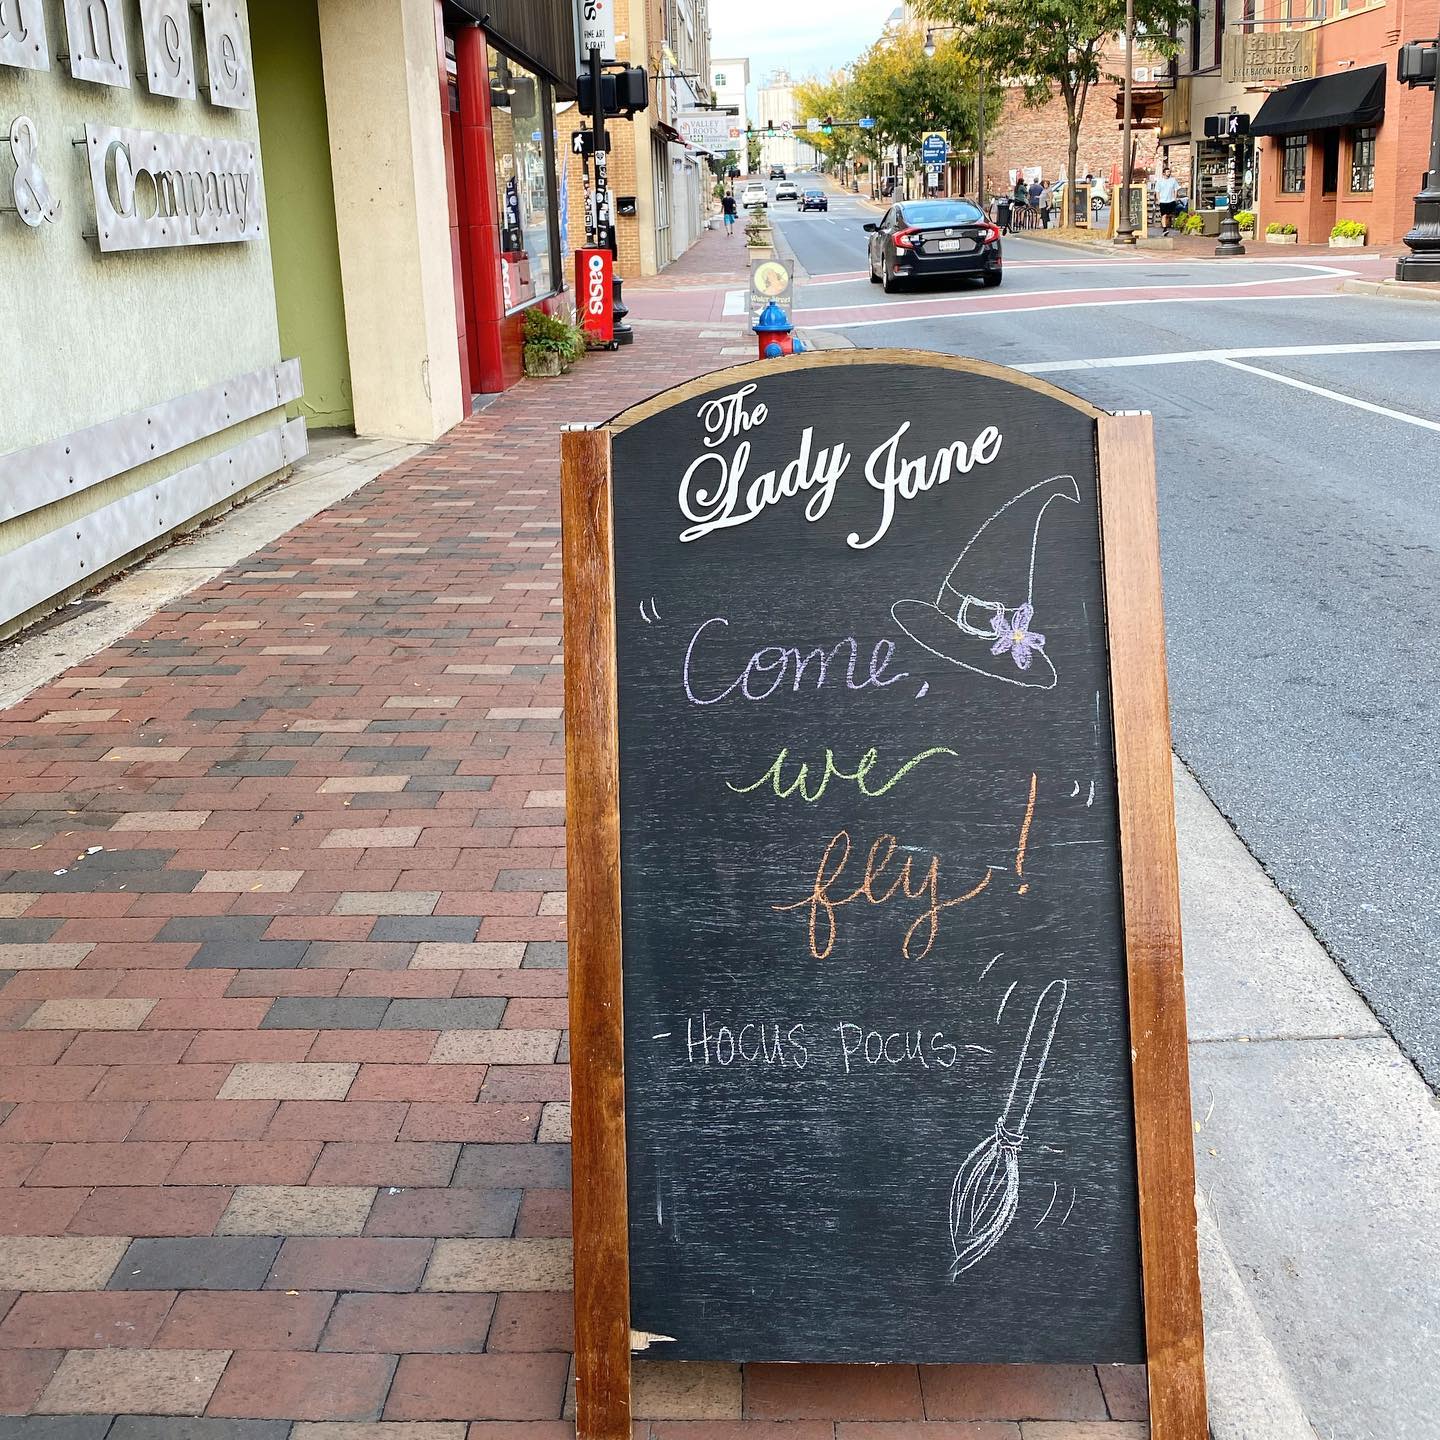 ance
& Company
FINE ART
& CRAFT
oasis
VALLEY
ROOTS
Water Street
Billy
Jack's
BEEF BACON BEER BIRD
The
Lady Jane
"Come,
we
fly!"
-Hocus Pocus-